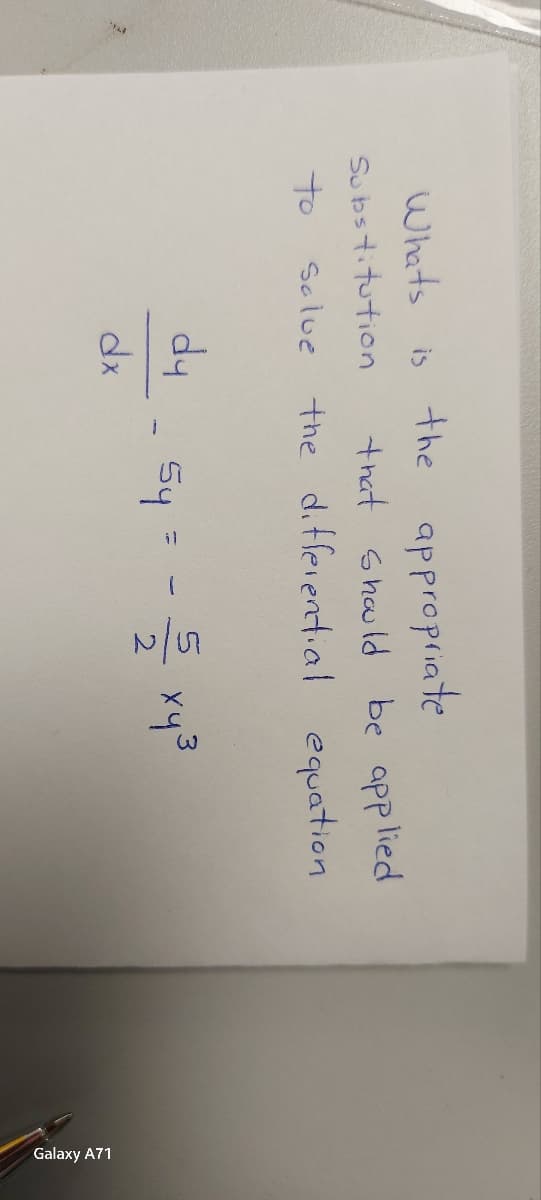 Whats is the appropriate
Substitution that should be applied
to solve the differential equation
dy/dx - 5y = - 5/2 xy³
Galaxy A71